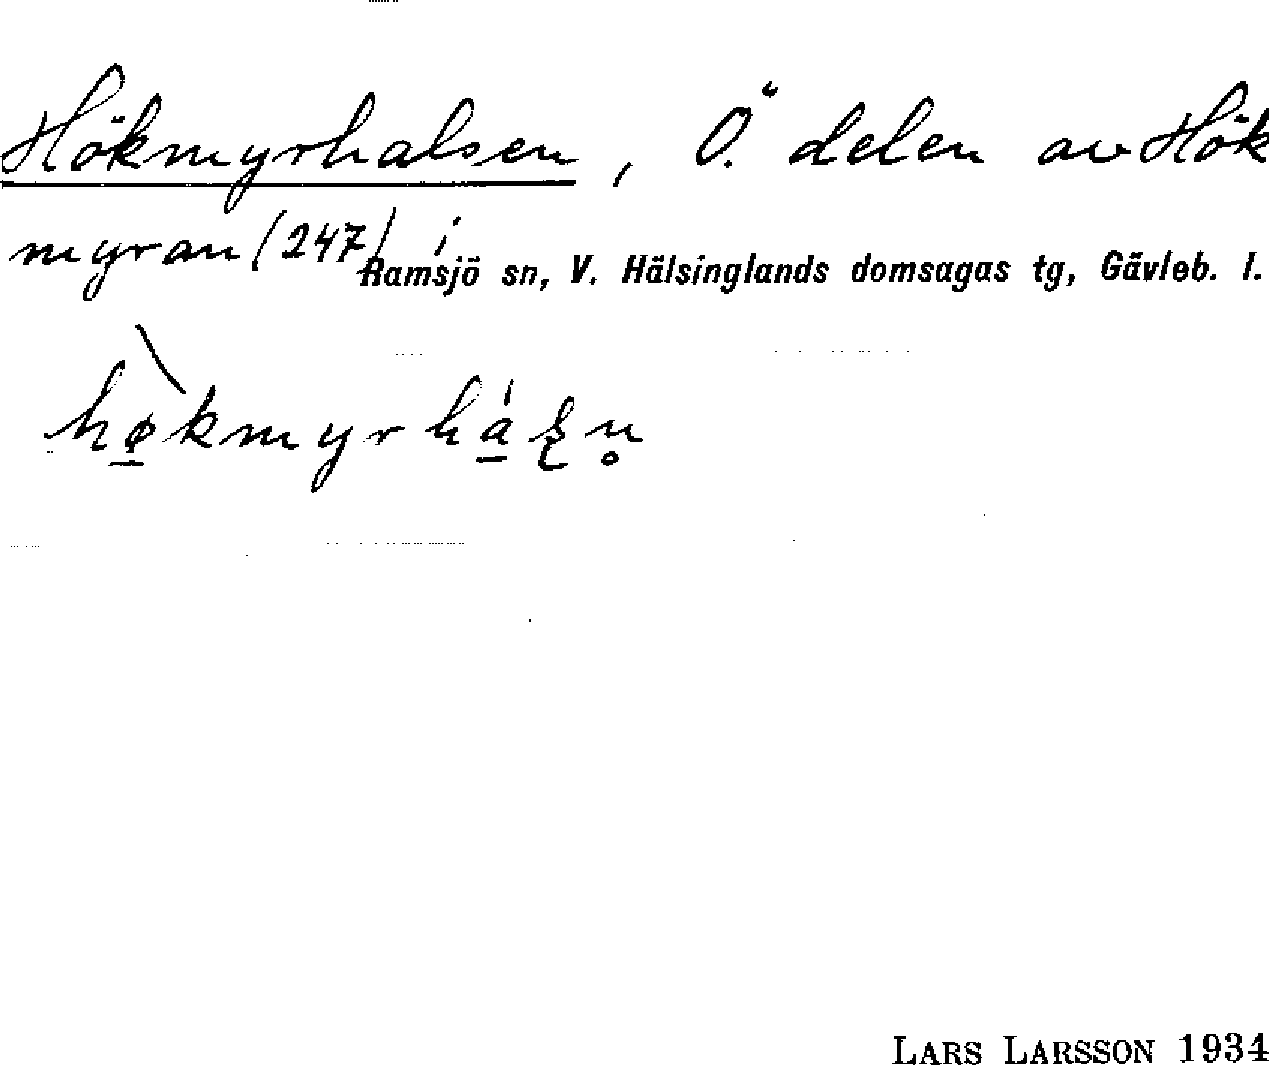 Hökmyrhalsen, Ö. delen av Hök
myran (247) i
Ramsjö sn, V. Hälsinglands domsagas tg, Gävleb. l.
LARS LARSSON 1934